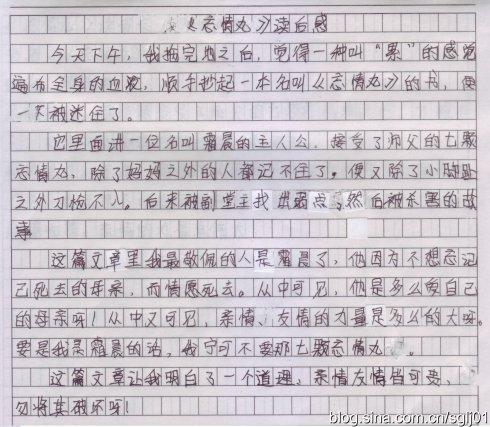 《忘情丸》读后感
今天下午，我拖完地之后，觉得一种叫“累”的感觉
遍布全身的血液，顺手抄起一本名叫《忘情丸》的书，便
一下被迷住了。
它里面讲一位名叫霜晨的主人公，接受了师父的七颗
忘情丸，除了妈妈之外的人都记不住了。便又除了小肚脐
之外刀枪不入。后来被副堂主找出弱点，然后被杀害的故
事
这篇文章里我最敬佩的人是霜晨了，他因为不想忘记
己死去的母亲，而情愿死去。从中可见，他是多么爱自己
的母亲呀！从中又可见，亲情、友情的力量是多么的大呀。
要是我是霜晨的话，我宁可不要那七颗忘情丸。
这篇文章让我明白了一个道理，亲情友情皆可爱，
勿将其破坏呀！
blog.sina.com.cn/sglj01